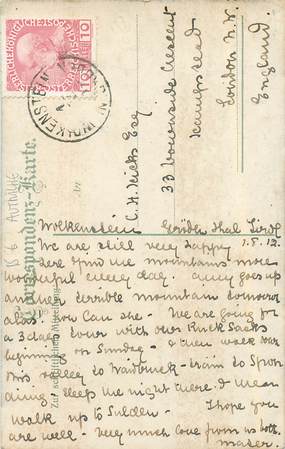 KAISERLICHE KÖNIGLICHE ÖSTERR. POST
10 HELLER 10
WOLKENSTEIN
Correspondenz-Karte.
C. H. Hicks Esq
33 Downside Crescent
Hampstead
London N.W.
England
Wolkenstein Gröden Thal Tirol
1.8.12
We are still very happy
here & find the mountains more
wonderful every day. Amy goes up
another terrible mountain tomorrow
alas! You can see. We are going for
a 3 days tour with our Ruck Sacks
beginning on Sunday - & then walk down
this valley to - train to Spon
dinig sleep the night there & mean
walk up to Sulden. I hope you
are well. Very much love from us both.
Mater.